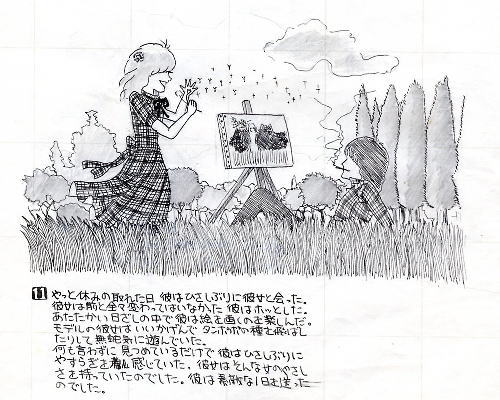 11 やっと休みの取れた日 彼はひさしぶりに彼女と会った。
彼女は前と全々変わってはいなかった 彼はホッとした。
あたたかい日ざしの中で彼は絵を画くのを楽しんだ。
モデルの彼女はいいかげんで タンポポの種を飛ばし
たりして無邪気に遊んでいた。
何も言わずに 見つめているだけで 彼はひさしぶりに
やすらぎを感じていた。彼女はそんな女のやさし
さを持っていたのでした。彼は素敵な1日を送った
のでした。